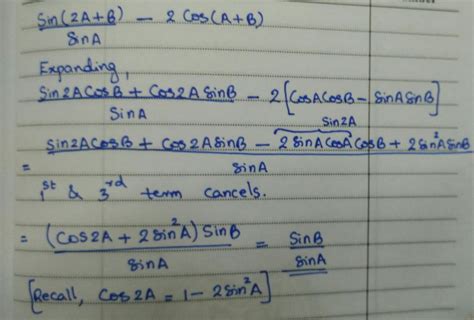 Sin(2A+B) / SinA − 2 Cos(A+B)
Expanding,
Sin2A CosB + Cos2A SinB / SinA − 2[CosACosB − SinASinB]
Sin2A
= Sin2A CosB + Cos2A SinB − 2 SinA CosA CosB + 2 Sin²A SinB / SinA
1st & 3rd term cancels.
= (Cos2A + 2Sin²A) SinB / SinA = SinB / SinA
[Recall, Cos2A = 1 − 2Sin²A]